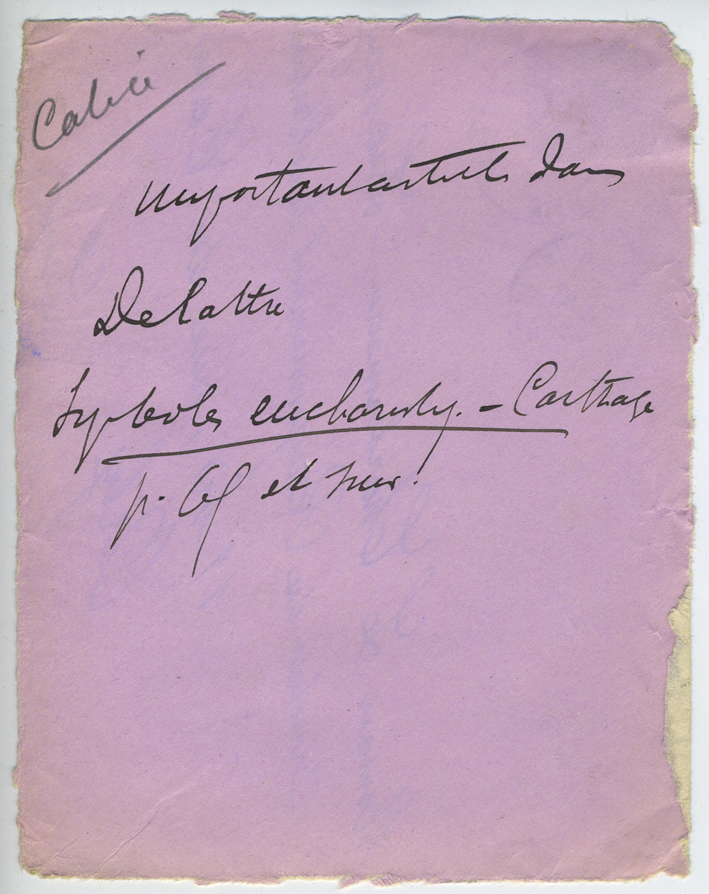 Calice
important article dans
Delattre
Symboles eucharistiq. - Carthage
p. et suiv.